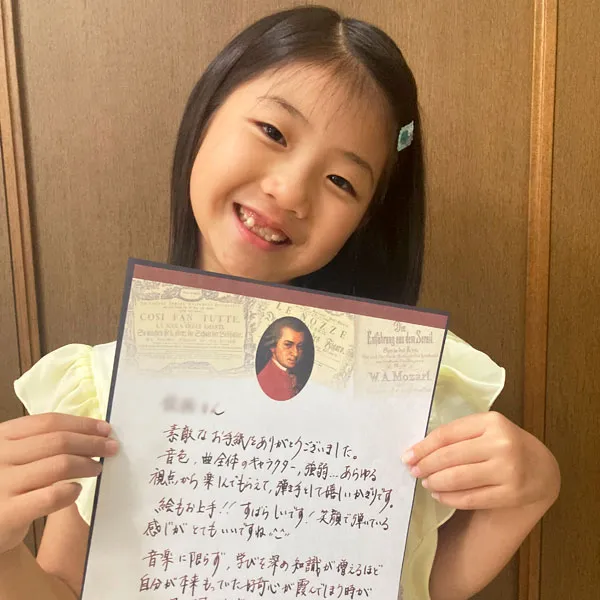 COSI FAN TUTTE
LE NOZZE
Die
Entführung aus dem Serail.
W. A. Mozart.
さん
素敵なお手紙をありがとうございました。
音色、曲全体のキャラクター、強弱…あらゆる
視点から楽しんでもらえて、弾き手として嬉しいかぎりです。
絵もお上手!! すばらしいです! 笑顔で弾いている
感じがとてもいいですね ^^
音楽に限らず、学びを深め知識が増えるほど
自分が本来もっていた好奇心が霞んでしまう時が